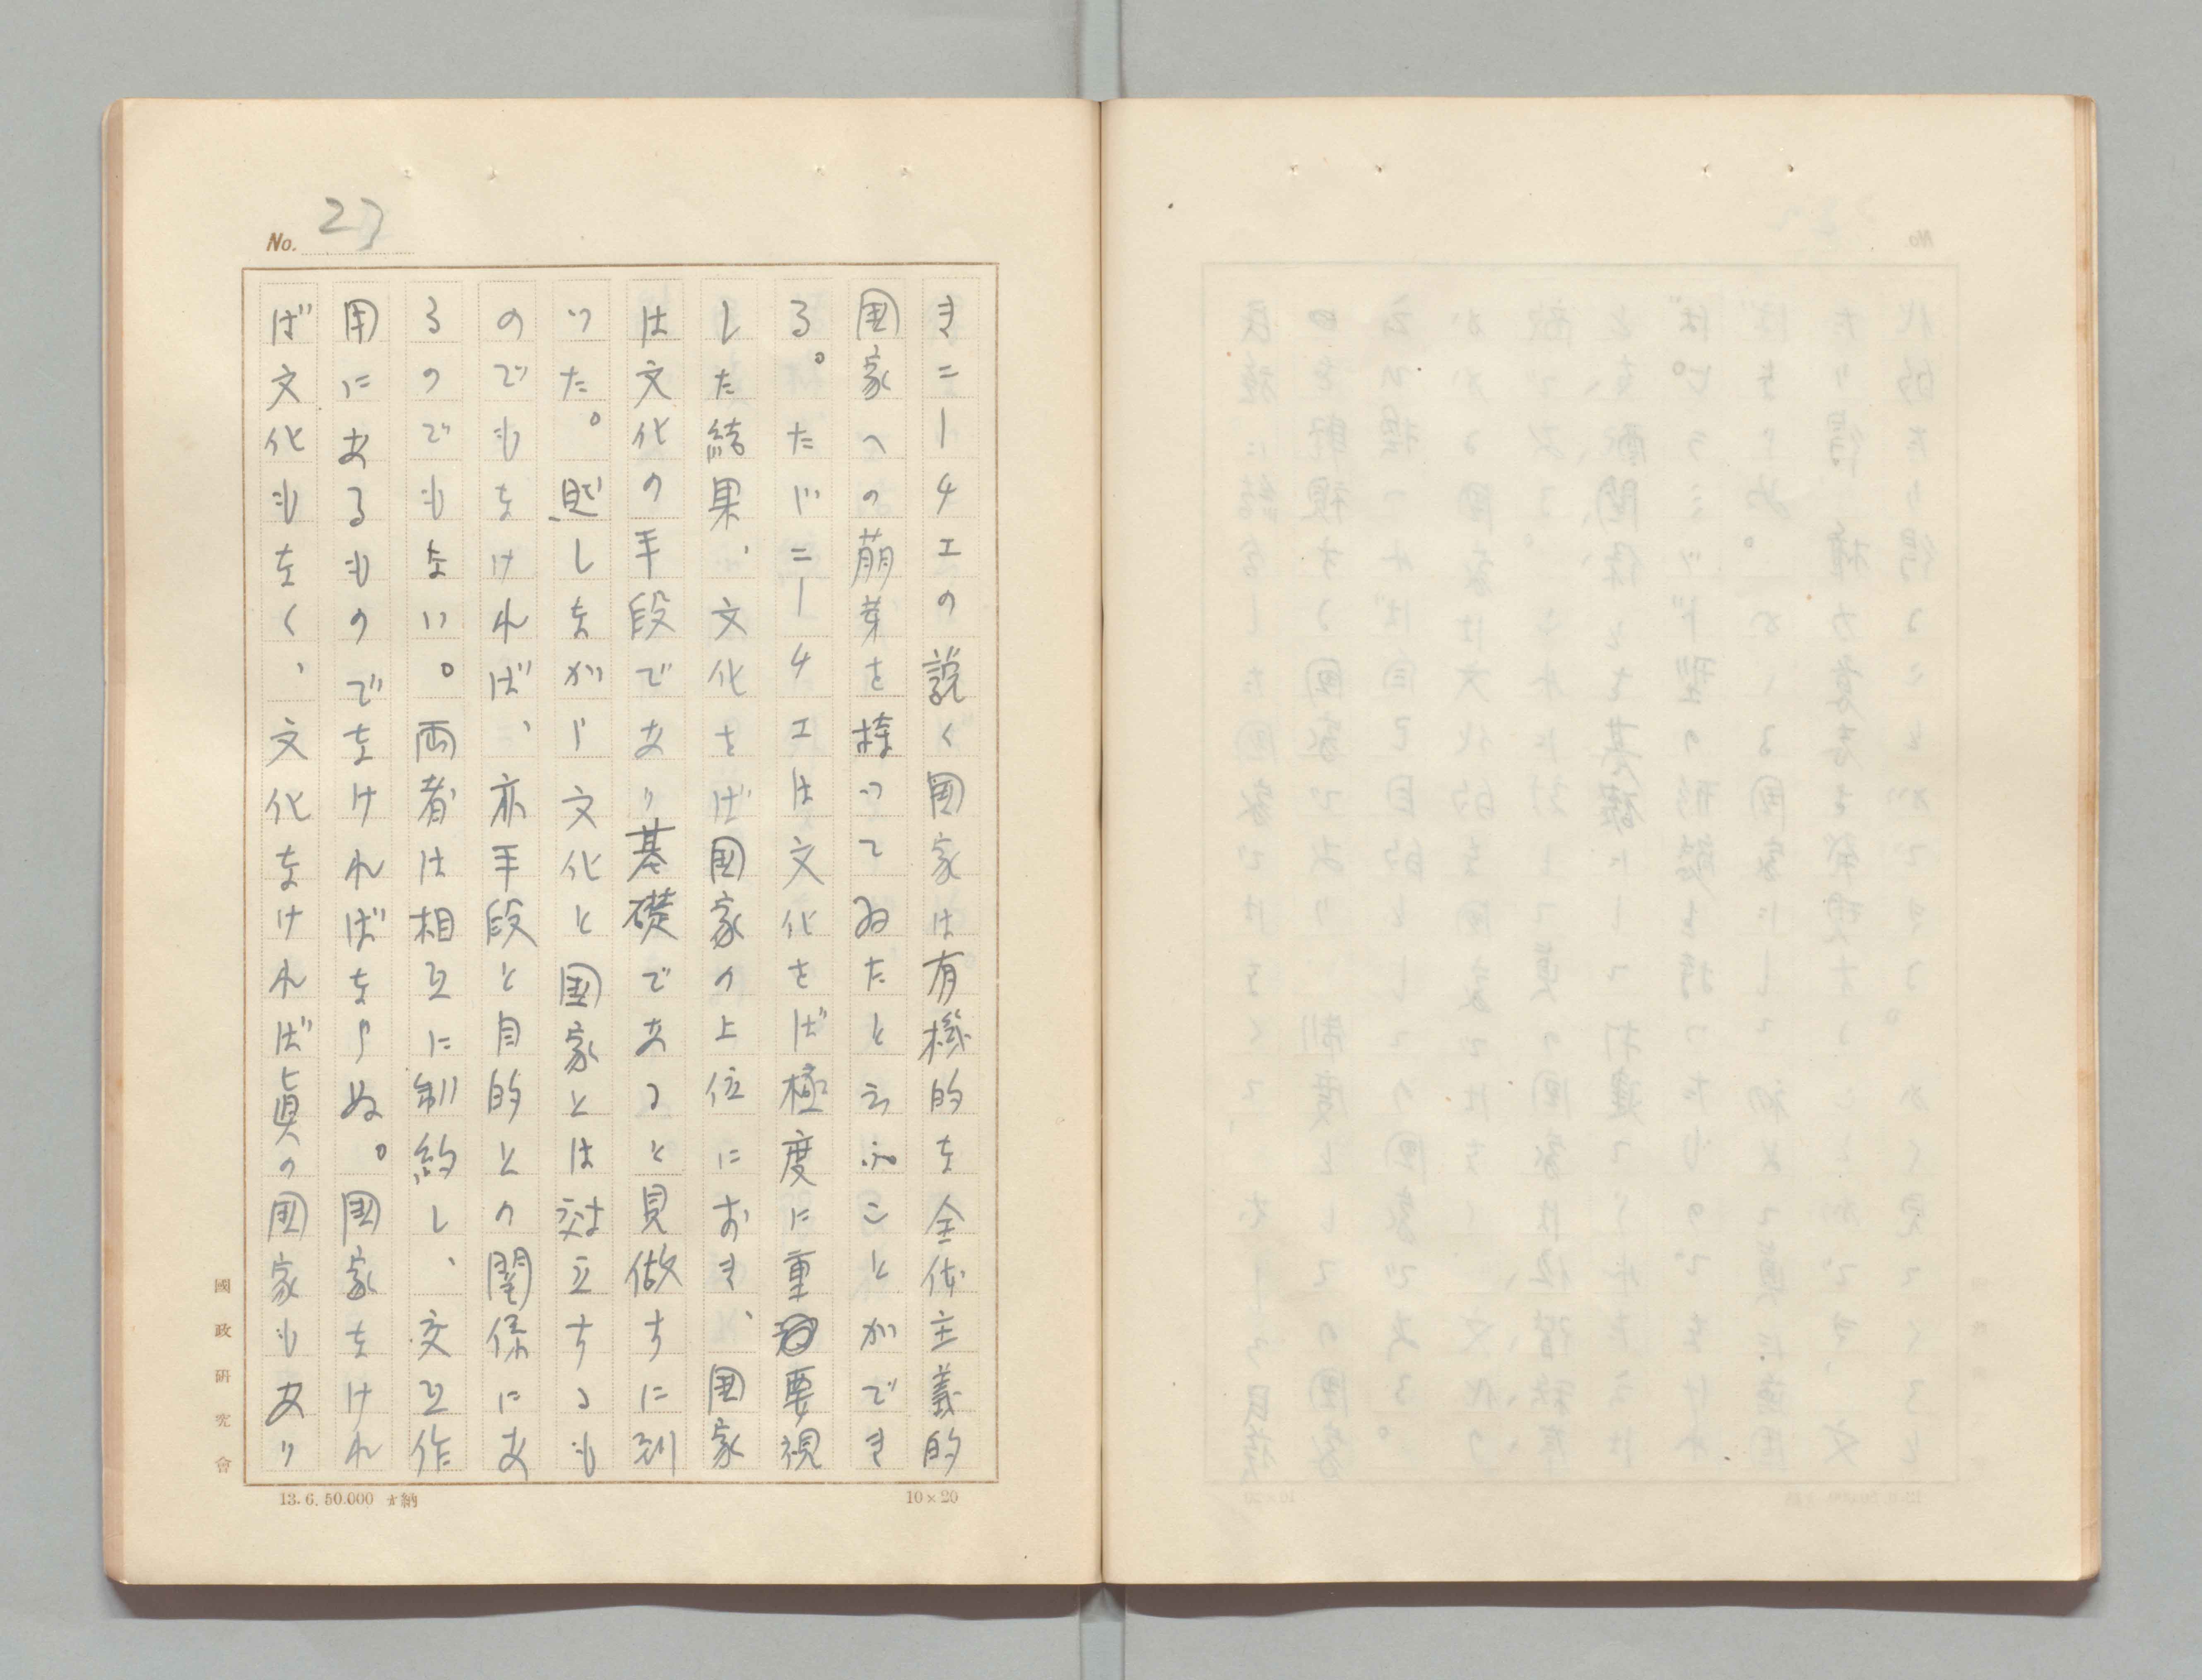 No. 23
きニーチエの説く国家は有機的な全体主義的
国家への萠芽を持つてゐたと云ふことができ
る。たゞニーチエは文化をば極度に重要視
した結果、文化をば国家の上位におき、国家
は文化の手段であり基礎であると見做すに到
つた。然しながら文化と国家とは対立するも
のでもなければ、亦手段と目的との関係にあ
るのでもない。両者は相互に制約し、交互作
用にあるものでなければならぬ。国家なけれ
ば文化もなく、文化なければ眞の国家もあり
國政研究會
13.6.50.000 納
10×20